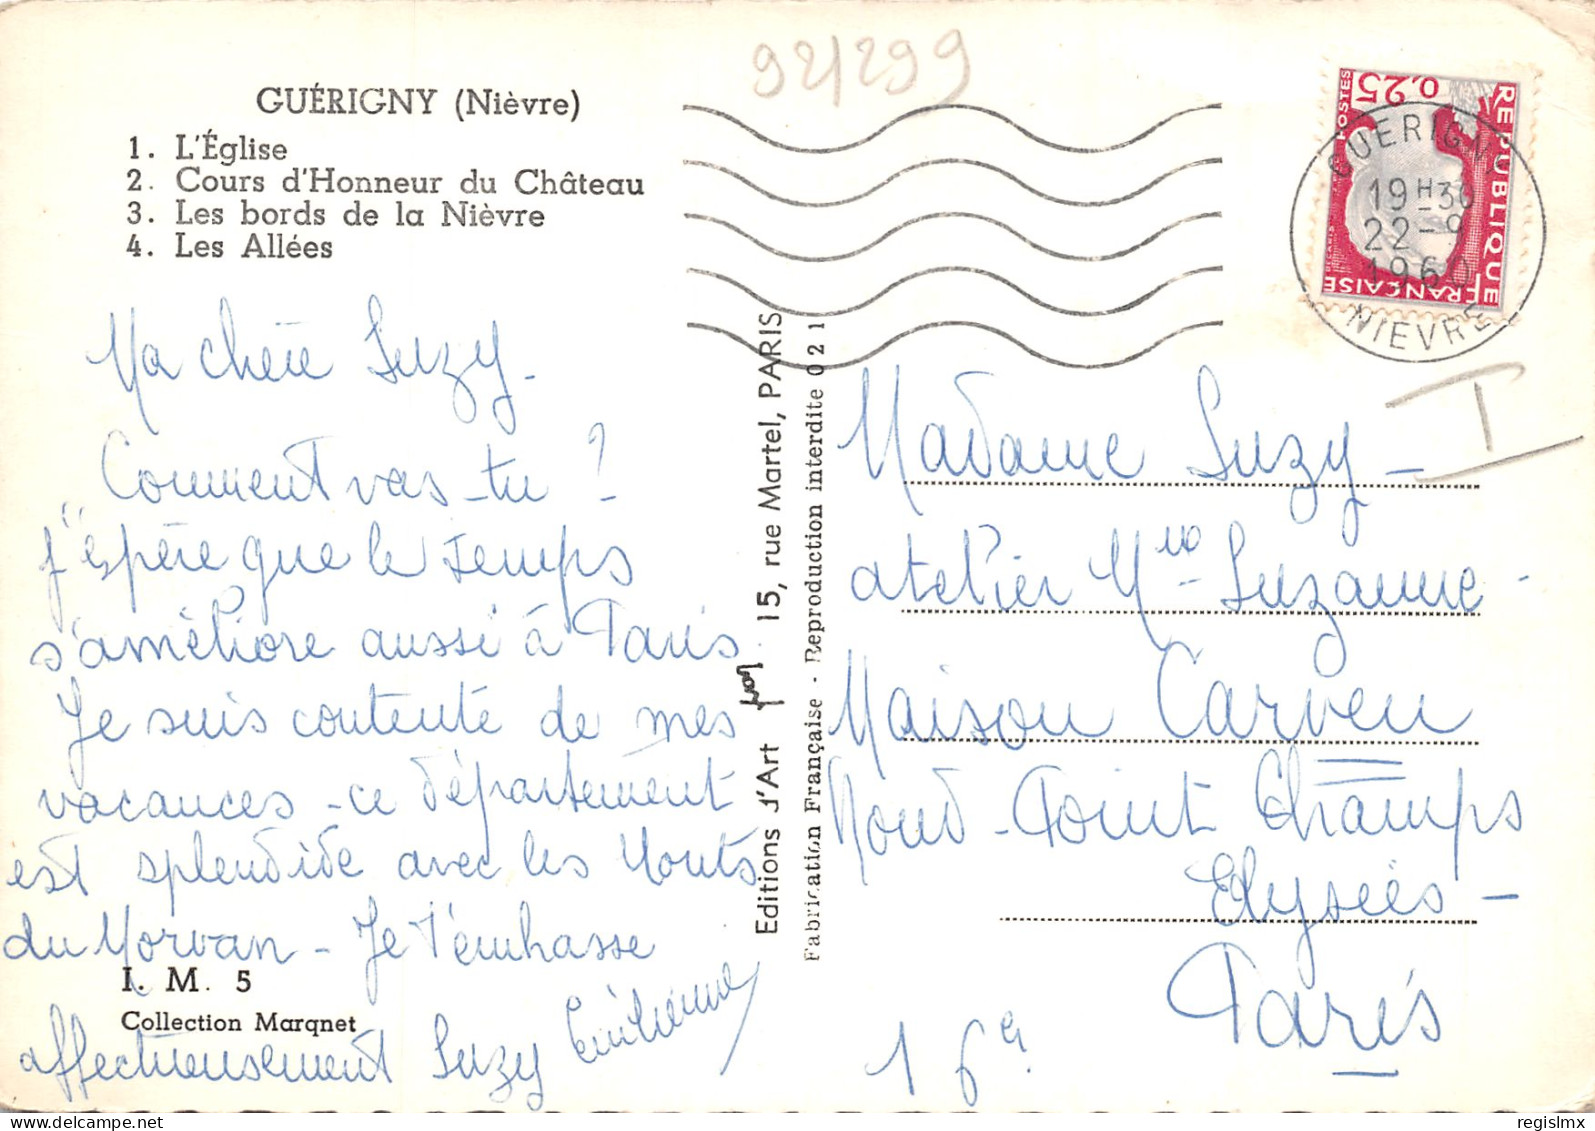 92/299
GUÉRIGNY (Nièvre)
1. L'Église
2. Cours d'Honneur du Château
3. Les bords de la Nièvre
4. Les Allées
POSTES
0,25
REPUBLIQUE
FRANÇAISE
GUERIGNY
19H30
22-9
1960
NIEVRE
I
Ma chère Suzy -
Comment vas-tu ?
J'espère que le temps
s'améliore aussi à Paris
Je suis contente de mes
vacances - ce département
est splendide avec les Monts
du Morvan - Je t'embrasse
affectueusement Suzy
I. M. 5
Collection Marqnet
Editions d'Art yvon 15, rue Martel, PARIS
Fabrication Française - Reproduction interdite 021
Madame Suzy -
atelier Suzanne -
Maison Carven
Rond-Point Champs
Elysées -
Paris
regislmx
delcampe.net